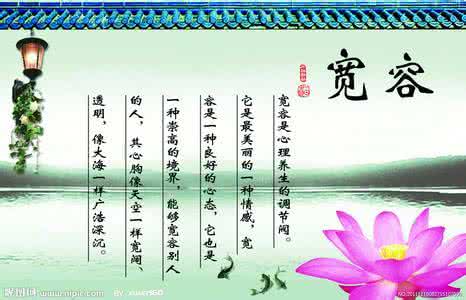 宽容
宽容是心理养生的调节阀。
它是最美丽的一种情感，宽
容是一种良好的心态，它也是
一种崇高的境界，能够宽容别人
的人，其心胸像天空一样宽阔、
透明，像大海一样广浩深沉。
昵图网 www.nipic.com